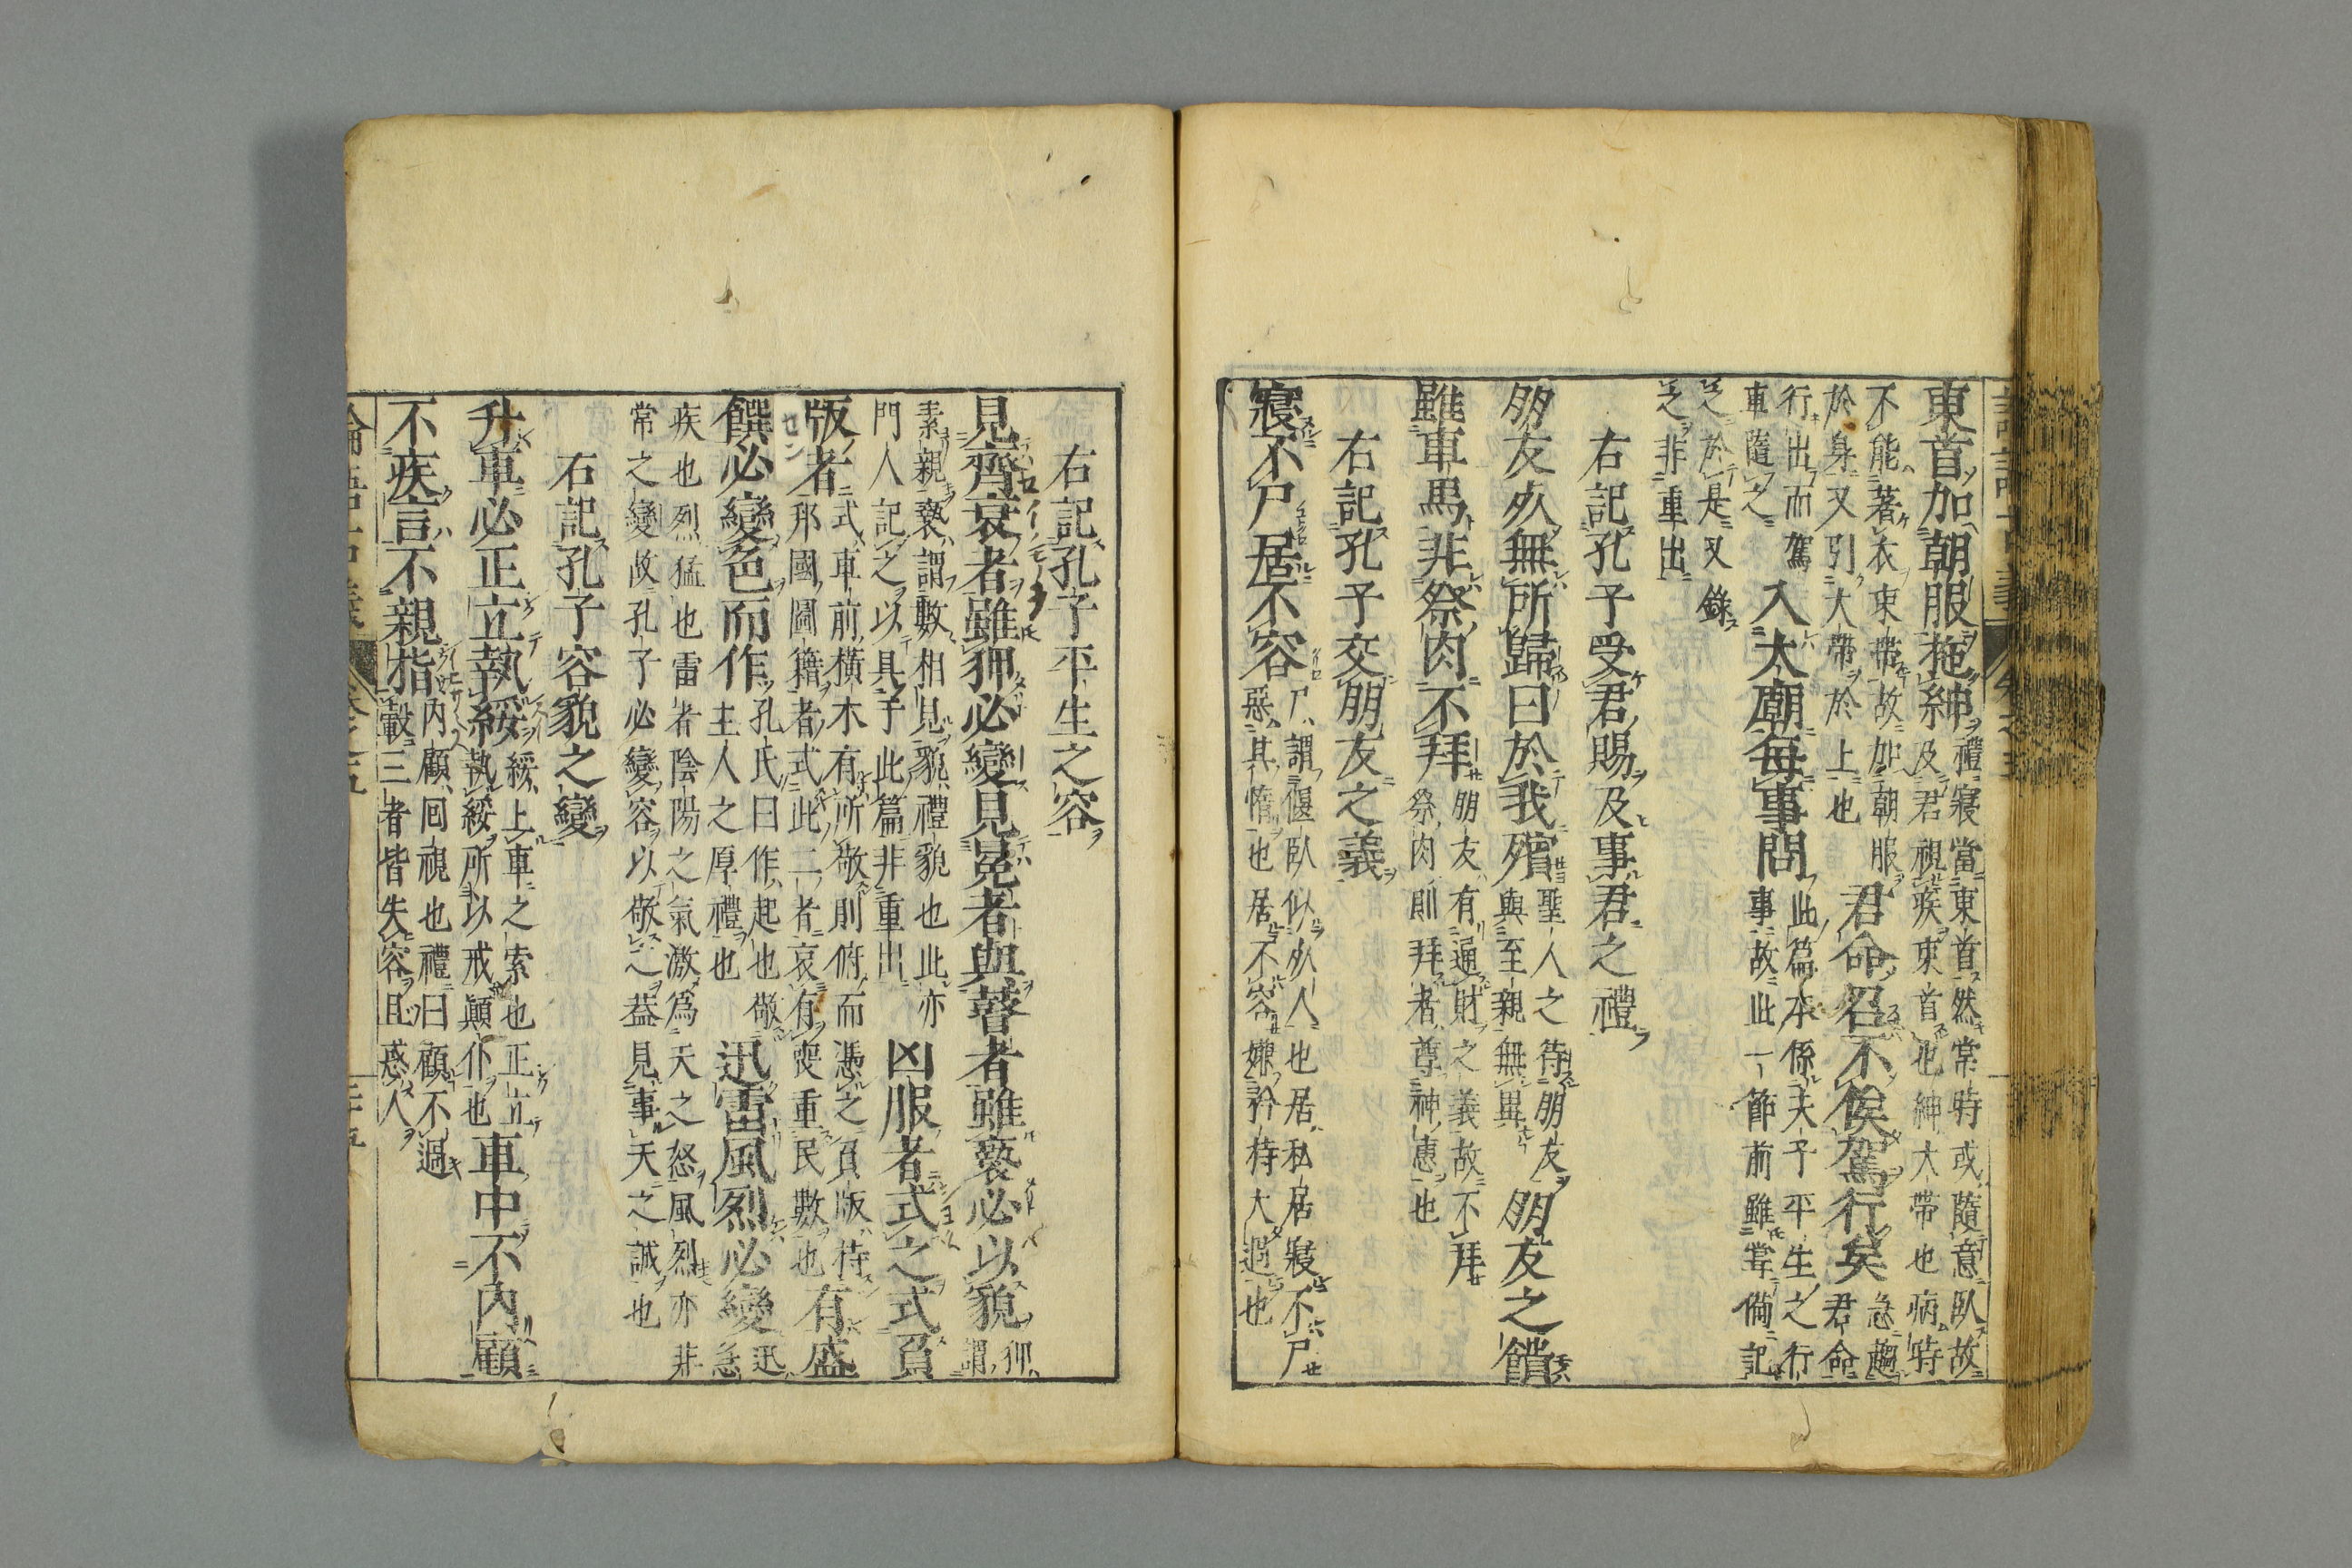 東首加朝服拖紳禮寢當東首然常時或隨意臥故
及君視疾東首也紳大帶也病時
不能著衣束帶故加朝服
於身又引大帶於上也
君命召不俟駕行矣急趨君命
行出而駕
車隨之
入太廟每事問此篇本係夫子平生之行
事故此一節前雖嘗備記
之於是又錄
之非重出
右記孔子受君賜及事君之禮
朋友死無所歸曰於我殯聖人之待朋友
與至親無異
朋友之饋
雖車馬非祭肉不拜朋友有通財之義故不拜
祭肉則拜者尊神惠也
右記孔子交朋友之義
寢不尸居不容尸謂偃臥似死人也居私居寢不尸
惡其惰也居不容嫌矜持太過也
右記孔子平生之容
見齊衰者雖狎必變見冕者與瞽者雖褻必以貌狎謂
素親褻謂數相見貌禮貌也此亦
門人記之以具于此篇非重出
凶服者式之式負
版者式車前橫木有所敬則俯而憑之負版持
邦國圖籍者式此二者哀有喪重民數也
有盛
饌必變色而作孔氏曰作起也敬
主人之厚禮也
迅雷風烈必變迅急
疾也烈猛也雷者陰陽之氣激爲天之怒風烈亦非
常之變故孔子必變容以敬之蓋見事天之誠也
右記孔子容貌之變
升車必正立執綏綏上車之索也正立
執綏所以戒顚仆也
車中不內顧
不疾言不親指內顧回視也禮曰顧不過
轂三者皆失容且惑人